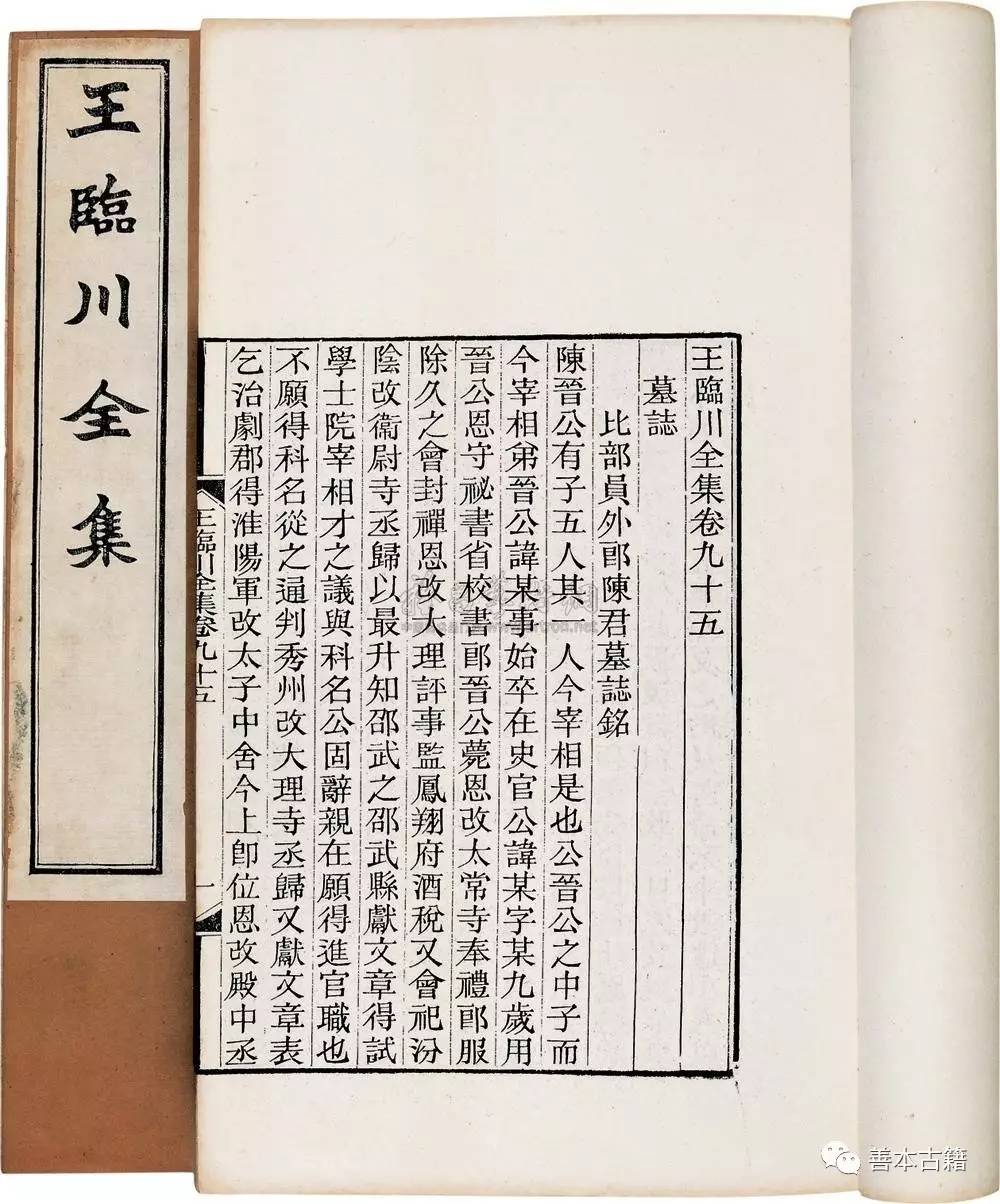 王臨川全集
王臨川全集卷九十五
墓誌
比部員外郎陳君墓誌銘
陳晉公有子五人其一人今宰相是也公晉公之中子而
今宰相弟晉公諱某事始卒在史官公諱某字某九歲用
晉公恩守祕書省校書郎晉公薨恩改太常寺奉禮郎服
除久之會封禪恩改大理評事監鳳翔府酒稅又會祀汾
陰改衞尉寺丞歸以最升知邵武之邵武縣獻文章得試
學士院宰相才之議與科名公固辭親在願得進官職也
不願得科名從之通判秀州改大理寺丞歸又獻文章表
乞治劇郡得淮陽軍改太子中舍今上卽位恩改殿中丞
王臨川全集卷九十五
一
善本古籍